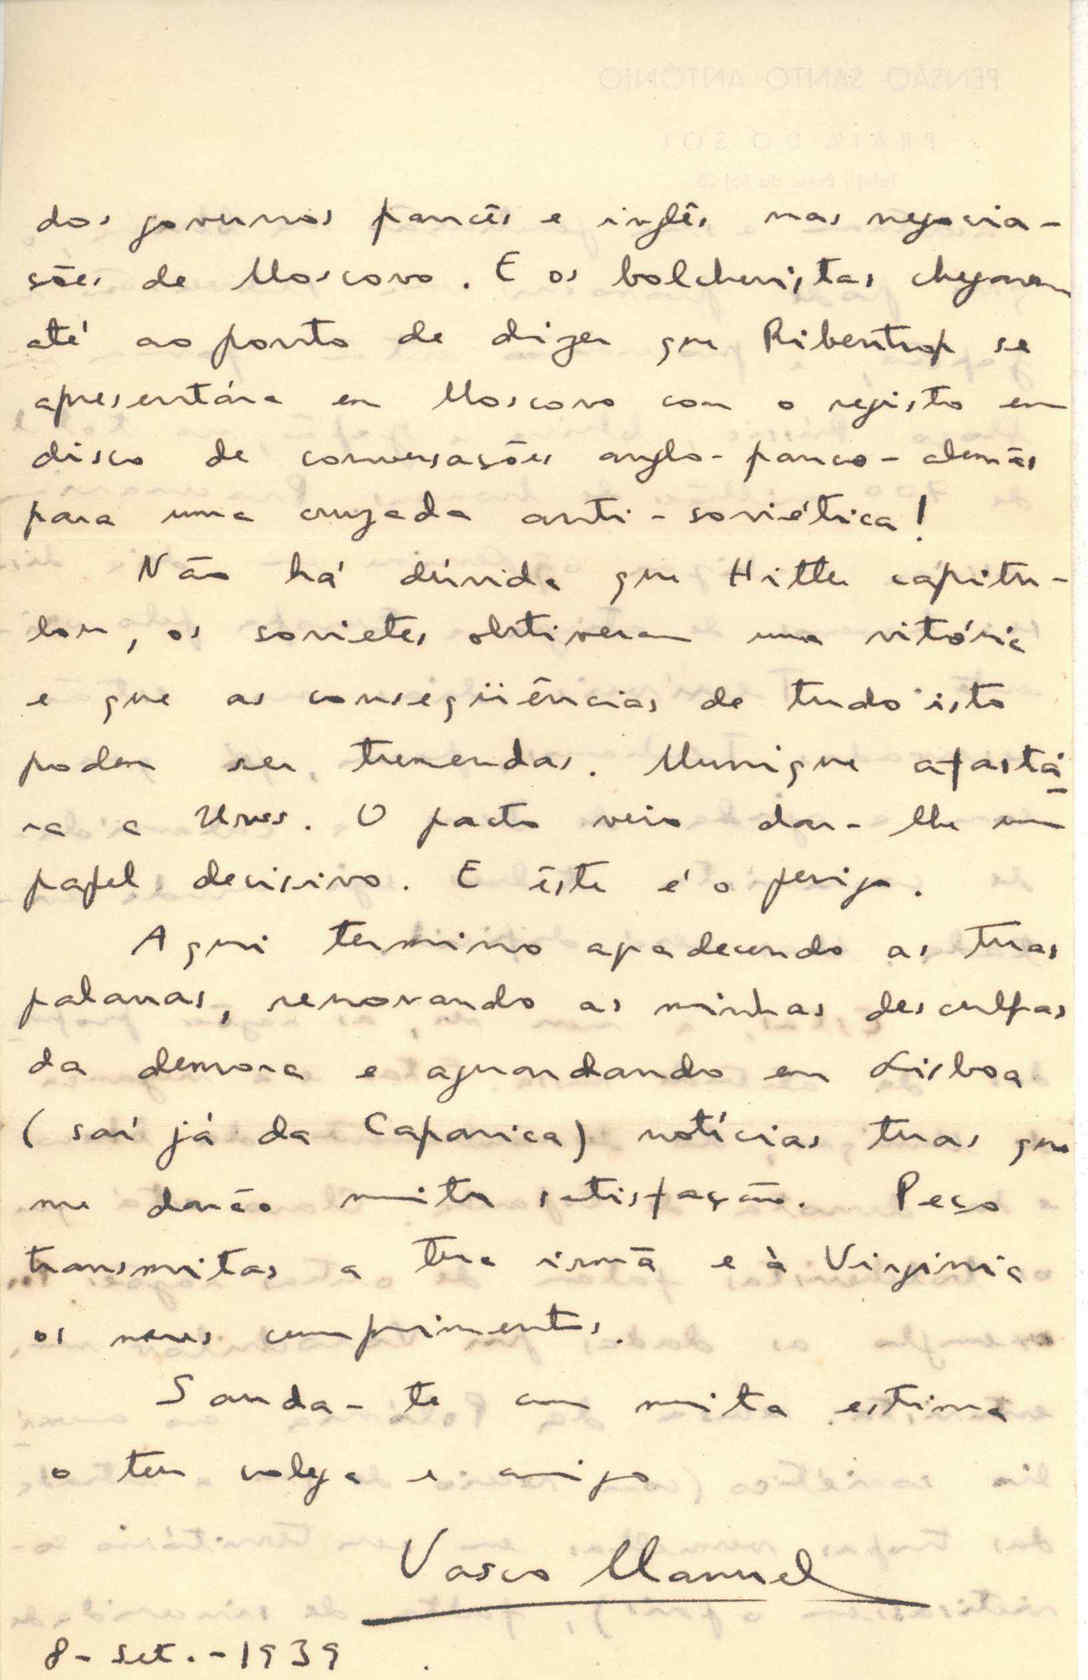 dos governos francês e inglês nas negocia-
ções de Moscovo. E os bolchevistas chegaram
até ao ponto de dizer que Ribentrop se
apresentára em Moscovo com o registo em
disco de conversações anglo-franco-alemãs
para uma cruzada anti-soviética!
Não há dúvida que Hitler capitu-
lou, os sovietes obtiveram uma vitória
e que as conseqüências de tudo isto
podem ser tremendas. Munique afastá-
ra a Urss. O pacto veio dar-lhe um
papel decisivo. E êste é o perigo.
Aqui termino agradecendo as tuas
palavras, renovando as minhas desculpas
da demora e aguardando em Lisboa
(saí já da Caparica) notícias tuas que
me darão muita satisfação. Peço
transmitas a tua irmã e à Virginia
os meus cumprimentos.
Sauda-te com muita estima
o teu colega e amigo
Vasco Manuel
8-set.-1939
PENSÃO SANTO ANTÓNIO
PRAIA DO SOL